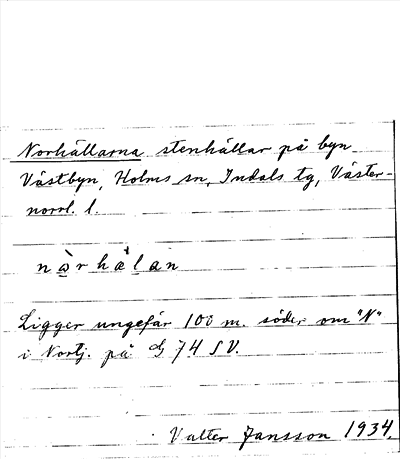 Norhällarna stenhällar på byn
Västbyn, Holms sn, Indals tg, Väster-
norrl. l.
nårhä̀lan
Ligger ungefär 100 m. söder om "N"
i Nortj. på G 74 SV.
Valter Jansson 1934.